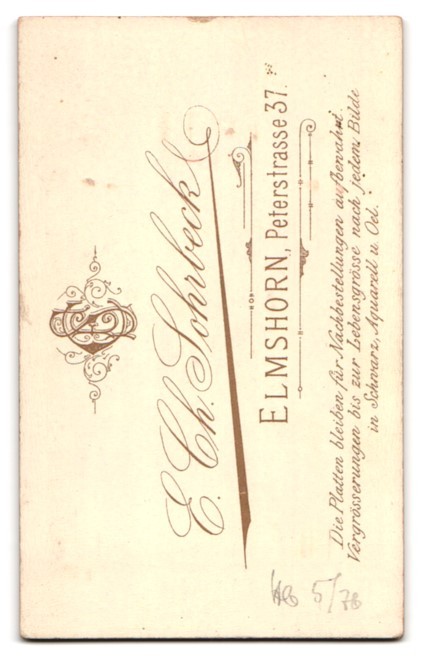 E. Ch. Sohrbeck
ELMSHORN, Peterstrasse 37.
Die Platten bleiben für Nachbestellungen aufbewahrt.
Vergrösserungen bis zur Lebensgrösse nach jedem Bilde
in Schwarz, Aquarell u. Oel.
5/78